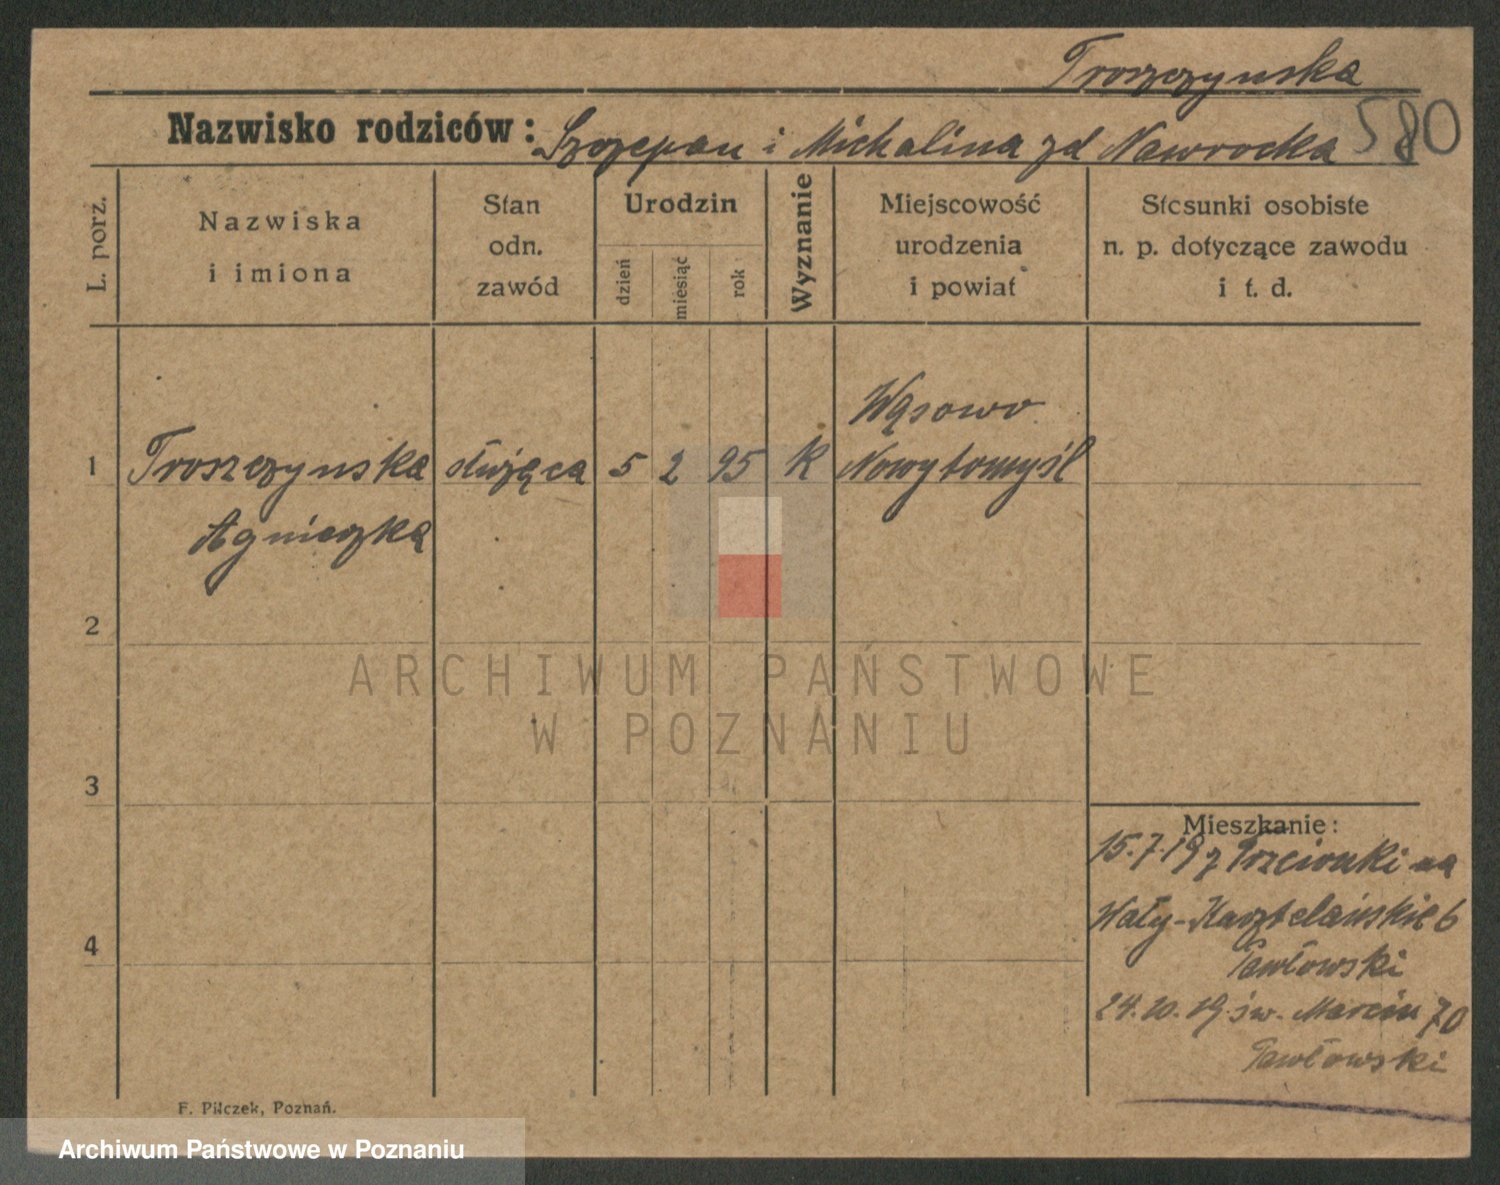 Troszczynska
580
Nazwisko rodziców: Szczepan i Michalina zd Nawrocka
L. porz.
Nazwiska
i imiona
Stan
odn.
zawód
Urodzin
dzień
miesiąc
rok
Wyznanie
Miejscowość
urodzenia
i powiat
Stosunki osobiste
n. p. dotyczące zawodu
i t. d.
Wąsowo
1 Troszczynska służąca 5 2 95 K Nowytomyśl
Agnieszka
2
3
4
Mieszkanie:
15.7.19 z Trzcionki na
Wały-Kasztelańskie 6
Pawłowski
24.10.19 św. Marcin 70
Pawłowski
F. Pilczek, Poznań.
ARCHIWUM PAŃSTWOWE
W POZNANIU
Archiwum Państwowe w Poznaniu